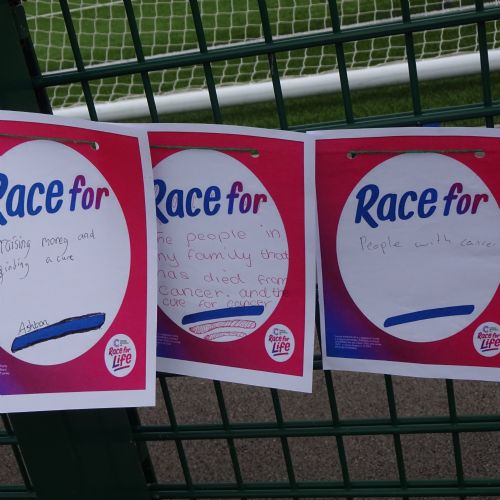 Race for
raising money and
finding a cure
Ashton
Race for
Life
Race for
The people in
my family that
has died from
cancer. and the
cure for cancer
Race for
Life
Race for
People with cancer
Race for
Life